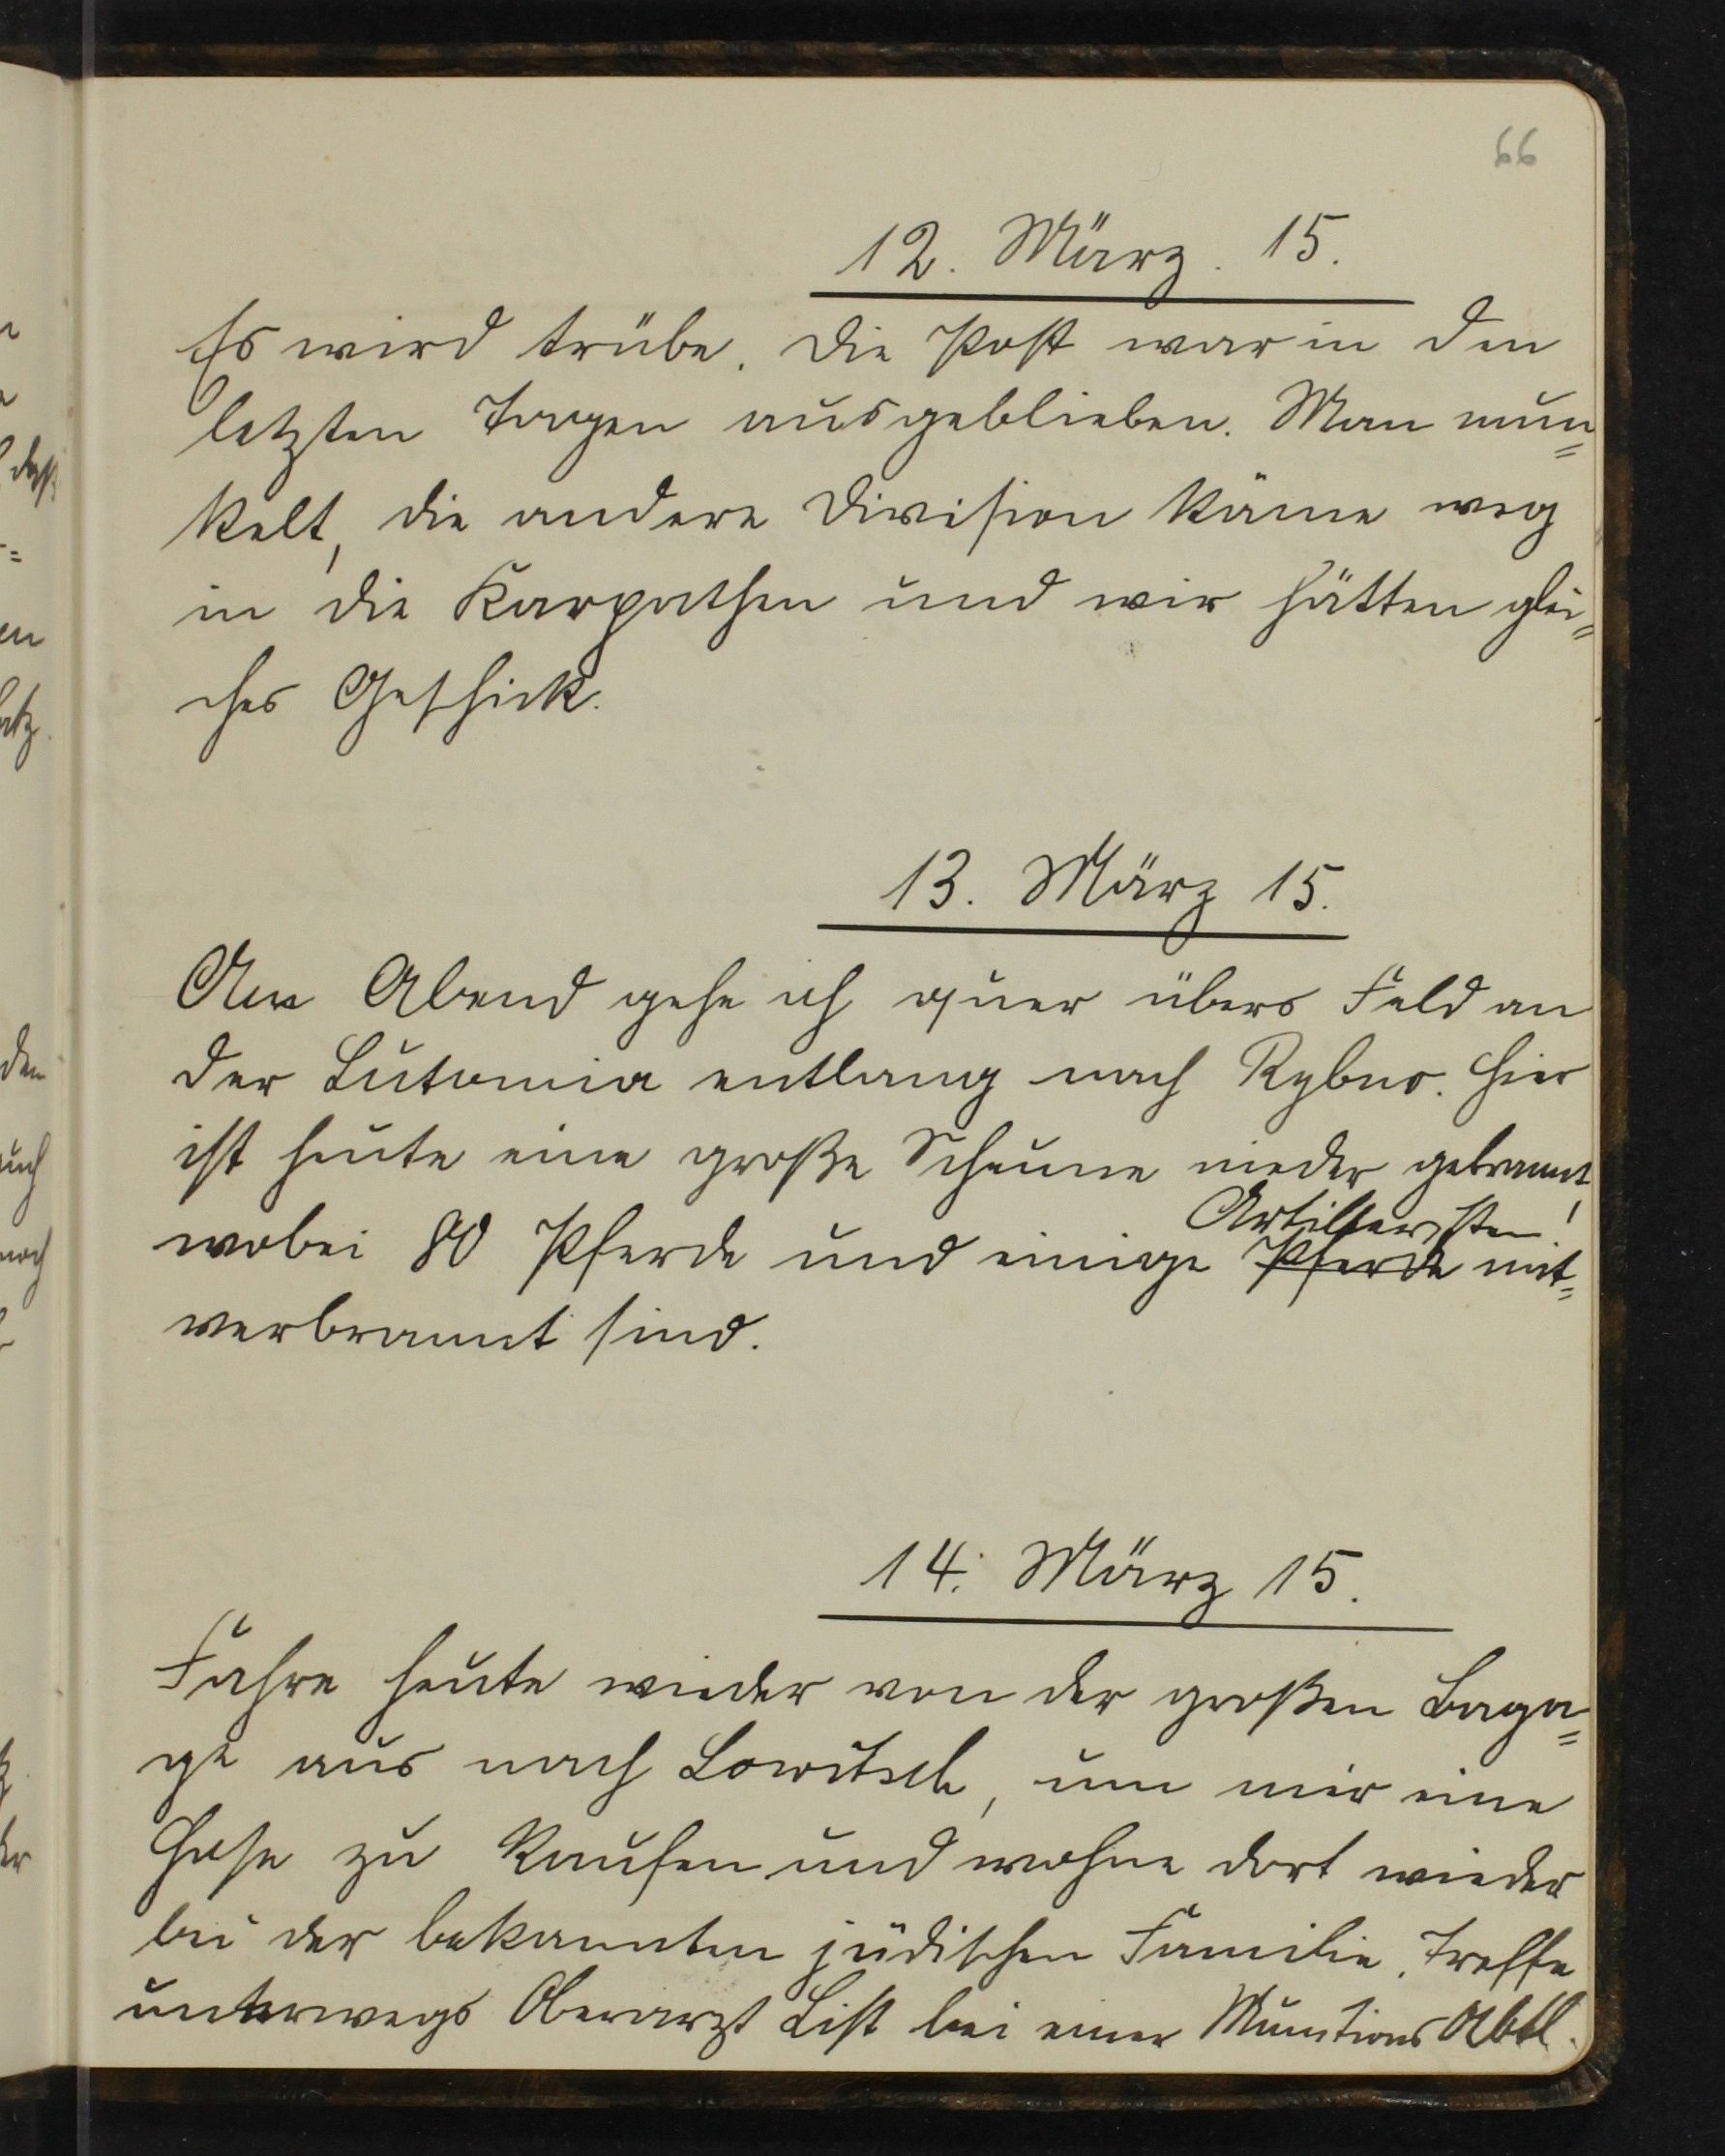 66
12. März. 15.
Es wird trübe. Die Post war in den
letzten Tagen ausgeblieben. Man mun=
kelt, die andere Division käme weg
in die Karpathen und wir hätten glei=
ches Geschick.
13. März 15.
Am Abend gehe ich quer übers Feld an
der Lutomia entlang nach Rybno. Hier
ist heute eine große Scheune nieder gebrannt
Artilleristen!
wobei 80 Pferde und einige Pferde mit=
verbrannt sind.
14. März 15.
Fahre heute wieder von der großen Baga=
ge aus nach Lowitsch, um mir eine
Hose zu kaufen und wohne dort wieder
bei der bekannten jüdischen Familie. Treffe
unterwegs Oberarzt List bei einer Munitions Abtl.